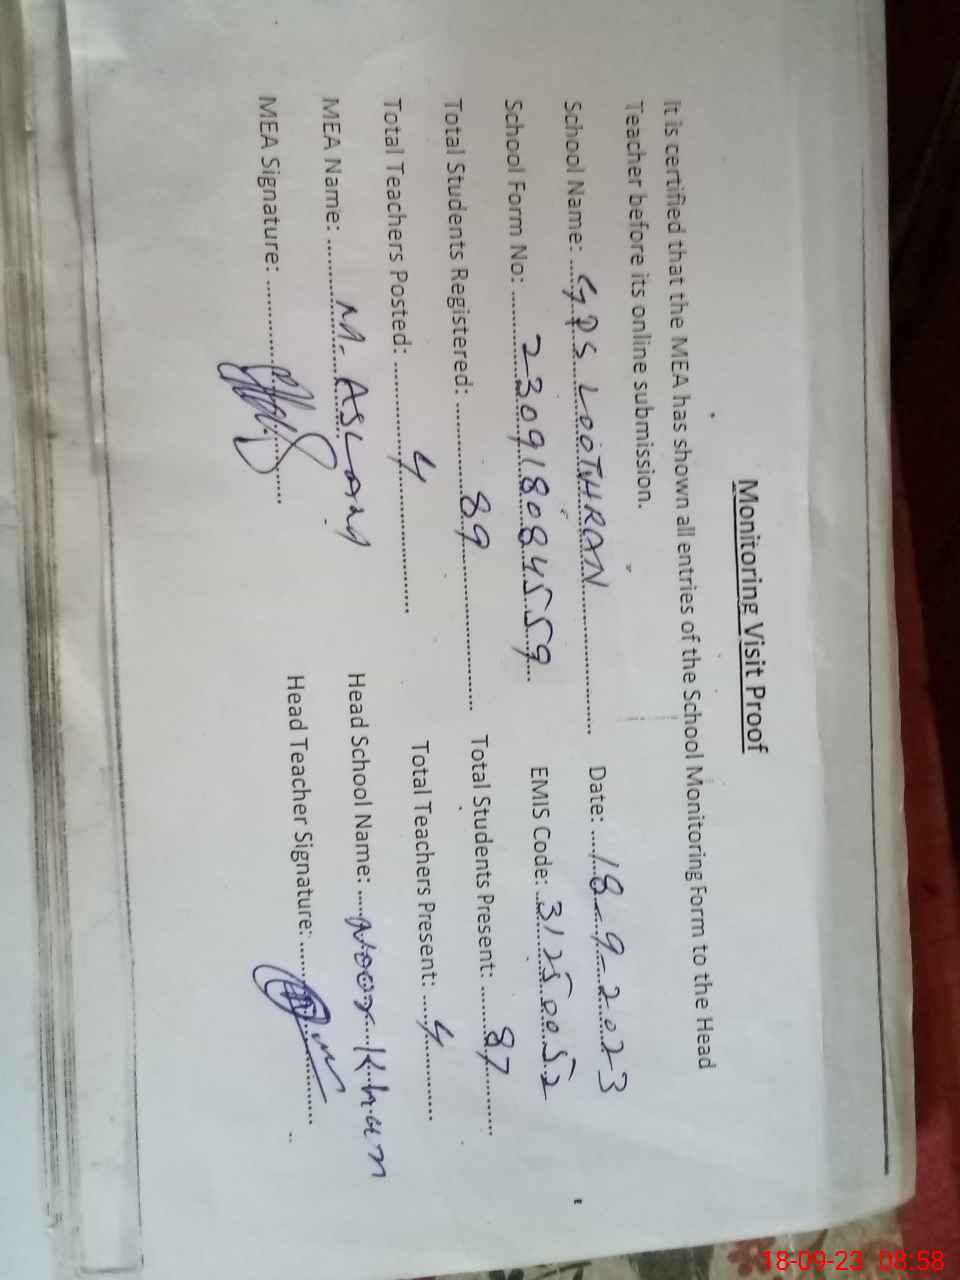 Monitoring Visit Proof
It is certified that the MEA has shown all entries of the School Monitoring Form to the Head
Teacher before its online submission.
School Name: GPS LOOTHRAN Date: 18-9-2023
School Form No: 230918084559 EMIS Code: 31250052
Total Students Registered: 89 Total Students Present: 87
Total Teachers Posted: 4 Total Teachers Present: 4
MEA Name: M. ASLam Head School Name: Noor Khan
MEA Signature: Head Teacher Signature:
18-09-23 08:58